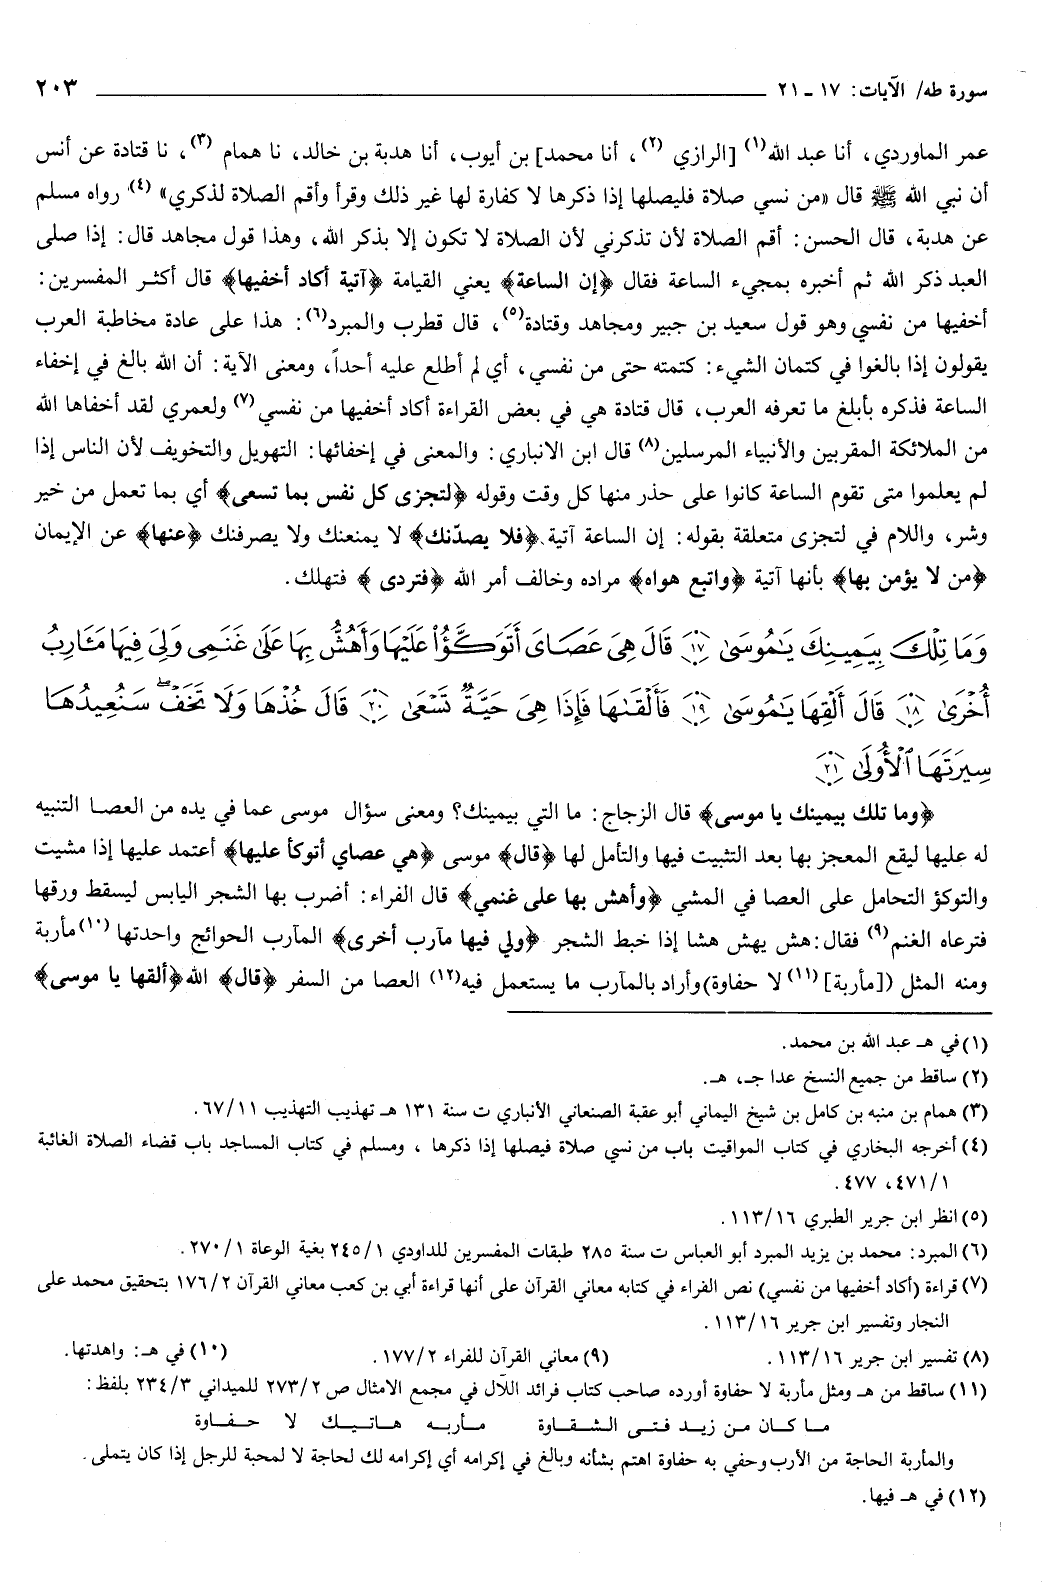 سورة طه/ الآيات: ١٧ ـ ٢١ ٢٠٣
عمر الماوردي، أنا عبد الله(١) [الرازي (٢)، أنا محمد] بن أيوب، أنا هدبة بن خالد، نا همام (٣)، نا قتادة عن أنس
أن نبي الله ﷺ قال «من نسي صلاة فليصلها إذا ذكرها لا كفارة لها غير ذلك وقرأ وأقم الصلاة لذكري» (٤)، رواه مسلم
عن هدبة، قال الحسن: أقم الصلاة لأن تذكرني لأن الصلاة لا تكون إلا بذكر الله، وهذا قول مجاهد قال: إذا صلى
العبد ذكر الله ثم أخبره بمجيء الساعة فقال ﴿إن الساعة﴾ يعني القيامة ﴿آتية أكاد أخفيها﴾ قال أكثر المفسرين:
أخفيها من نفسي وهو قول سعيد بن جبير ومجاهد وقتادة(٥)، قال قطرب والمبرد(٦): هذا على عادة مخاطبة العرب
يقولون إذا بالغوا في كتمان الشيء: كتمته حتى من نفسي، أي لم أطلع عليه أحداً، ومعنى الآية: أن الله بالغ في إخفاء
الساعة فذكره بأبلغ ما تعرفه العرب، قال قتادة هي في بعض القراءة أكاد أخفيها من نفسي(٧) ولعمري لقد أخفاها الله
من الملائكة المقربين والأنبياء المرسلين(٨) قال ابن الانباري: والمعنى في إخفائها: التهويل والتخويف لأن الناس إذا
لم يعلموا متى تقوم الساعة كانوا على حذر منها كل وقت وقوله ﴿لتجزى كل نفس بما تسعى﴾ أي بما تعمل من خير
وشر، واللام في لتجزى متعلقة بقوله: إن الساعة آتية. ﴿فلا يصدّنك﴾ لا يمنعنك ولا يصرفنك ﴿عنها﴾ عن الإيمان
﴿من لا يؤمن بها﴾ بأنها آتية ﴿واتبع هواه﴾ مراده وخالف أمر الله ﴿فتردى﴾ فتهلك.
وَمَا تِلْكَ بِيَمِينِكَ يَٰمُوسَىٰ ﴿١٧﴾ قَالَ هِىَ عَصَاىَ أَتَوَكَّؤُا۟ عَلَيْهَا وَأَهُشُّ بِهَا عَلَىٰ غَنَمِى وَلِىَ فِيهَا مَـَٔارِبُ
أُخْرَىٰ ﴿١٨﴾ قَالَ أَلْقِهَا يَٰمُوسَىٰ ﴿١٩﴾ فَأَلْقَىٰهَا فَإِذَا هِىَ حَيَّةٌ تَسْعَىٰ ﴿٢٠﴾ قَالَ خُذْهَا وَلَا تَخَفْ ۖ سَنُعِيدُهَا
سِيرَتَهَا ٱلْأُولَىٰ ﴿٢١﴾
﴿وما تلك بيمينك يا موسى﴾ قال الزجاج: ما التي بيمينك؟ ومعنى سؤال موسى عما في يده من العصا التنبيه
له عليها ليقع المعجز بها بعد التثبيت فيها والتأمل لها ﴿قال﴾ موسى ﴿هي عصاي أتوكأ عليها﴾ أعتمد عليها إذا مشيت
والتوكؤ التحامل على العصا في المشي ﴿وأهش بها على غنمي﴾ قال الفراء: أضرب بها الشجر اليابس ليسقط ورقها
فترعاه الغنم(٩) فقال: هش يهش هشا إذا خبط الشجر ﴿ولي فيها مآرب أخرى﴾ المآرب الحوائج واحدتها (١٠) مأربة
ومنه المثل ([مأربة] (١١) لا حفاوة) وأراد بالمآرب ما يستعمل فيه(١٢) العصا من السفر ﴿قال﴾ الله ﴿ألقها يا موسى﴾
(١) في هـ عبد الله بن محمد.
(٢) ساقط من جميع النسخ عدا جـ، هـ.
(٣) همام بن منبه بن كامل بن شيخ اليماني أبو عقبة الصنعاني الأنباري ت سنة ١٣١ هـ تهذيب التهذيب ٦٧/١١.
(٤) أخرجه البخاري في كتاب المواقيت باب من نسي صلاة فيصلها إذا ذكرها ، ومسلم في كتاب المساجد باب قضاء الصلاة الغائبة
٤٧١/١، ٤٧٧.
(٥) انظر ابن جرير الطبري ١١٣/١٦.
(٦) المبرد: محمد بن يزيد المبرد أبو العباس ت سنة ٢٨٥ طبقات المفسرين للداودي ٢٤٥/١ بغية الوعاة ٢٧٠/١.
(٧) قراءة (أكاد أخفيها من نفسي) نص الفراء في كتابه معاني القرآن على أنها قراءة أبي بن كعب معاني القرآن ١٧٦/٢ بتحقيق محمد على
النجار وتفسير ابن جرير ١١٣/١٦.
(٨) تفسير ابن جرير ١١٣/١٦. (٩) معاني القرآن للفراء ١٧٧/٢. (١٠) في هـ: واهدتها.
(١١) ساقط من هـ ومثل مأربة لا حفاوة أورده صاحب كتاب فرائد اللآل في مجمع الامثال ص ٢٧٣/٢ للميداني ٢٣٤/٣ بلفظ:
ما كان من زيد فتى الشقاوة مأربه هاتيك لا حفاوة
والمأربة الحاجة من الأرب وحفي به حفاوة اهتم بشأنه وبالغ في إكرامه أي إكرامه لك لحاجة لا لمحبة للرجل إذا كان يتملى.
(١٢) في هـ فيها.